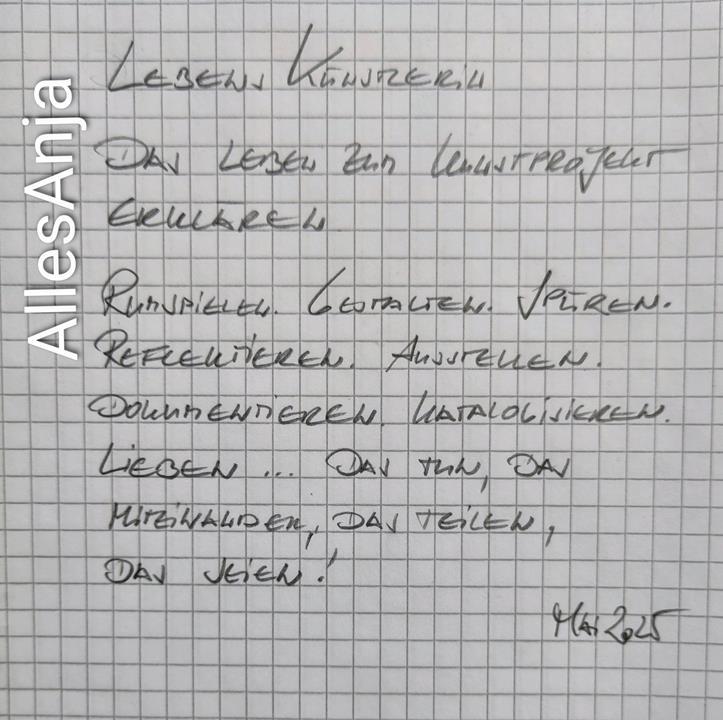 AllesAnja
LEBENS KÜNSTLERIN
DAS LEBEN ZUM KUNSTPROJEKT
ERKLÄREN
RUMSPIELEN. GESTALTEN. SPÜREN.
REFLEKTIEREN. AUSSTELLEN.
DOKUMENTIEREN. KATALOGISIEREN.
LIEBEN ... DAS TUN, DAS
MITEINANDER, DAS TEILEN,
DAS SEIEN!
MAI 2025